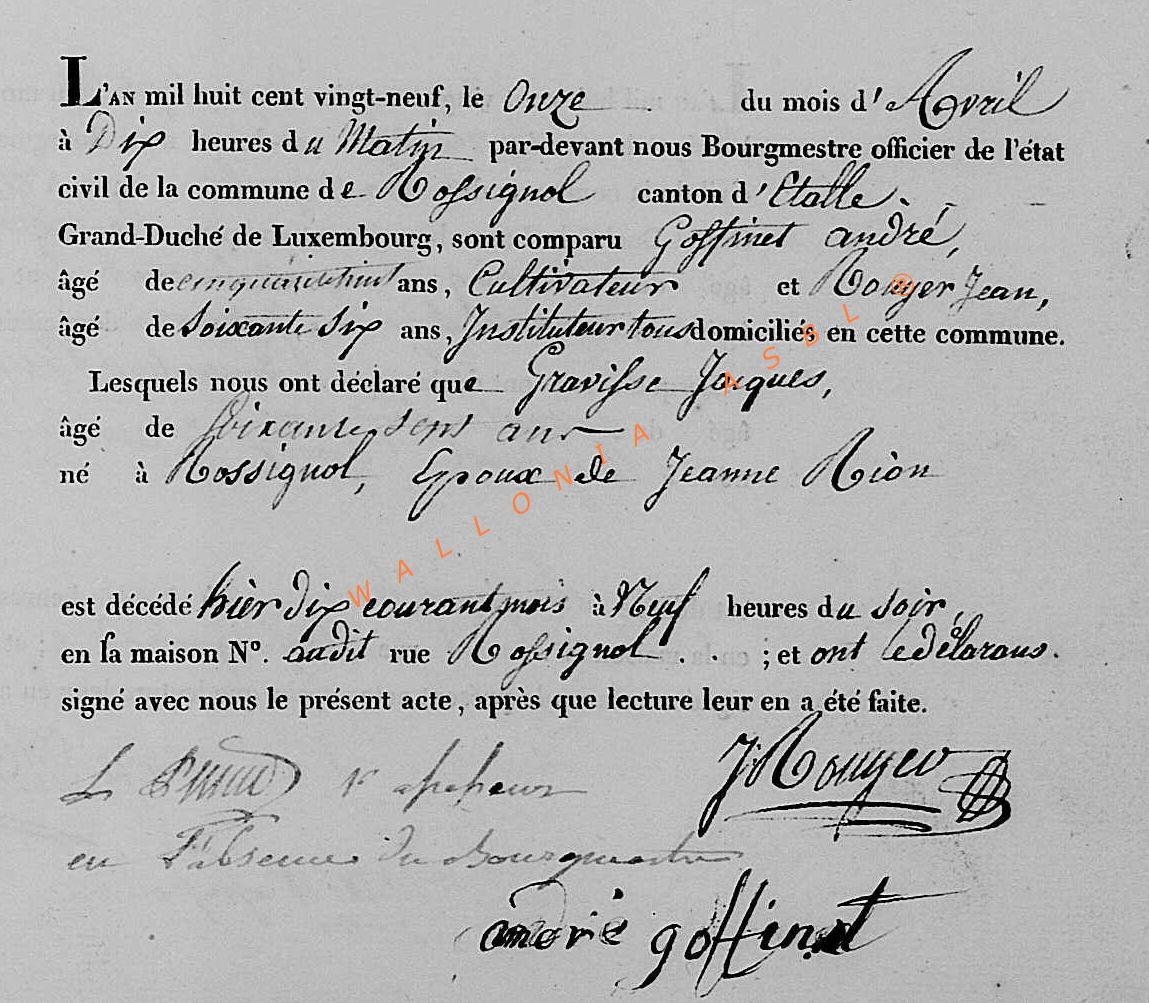 L'AN mil huit cent vingt-neuf, le Onze du mois d'Avril
à Dix heures du Matin par-devant nous Bourgmestre officier de l'état
civil de la commune de Rossignol canton d'Etalle.
Grand-Duché de Luxembourg, sont comparu Goffinet andré,
âgé de cinquante huit ans, Cultivateur et Rouyer Jean,
âgé de Soixante Six ans, Instituteur tous domiciliés en cette commune.
Lesquels nous ont déclaré que Gravisse Jacques,
âgé de Soixante sept ans
né à Rossignol, Epoux de Jeanne Rion
est décédé hier dix courant mois à Neuf heures du soir,
en sa maison N°. audit rue Rossignol . . ; et ont
signé avec nous le présent acte, après que lecture leur en a été faite.
J Rouyer
en l'absence du Bourgmestre
andrié goffinet
WALLONIA ASBL ®